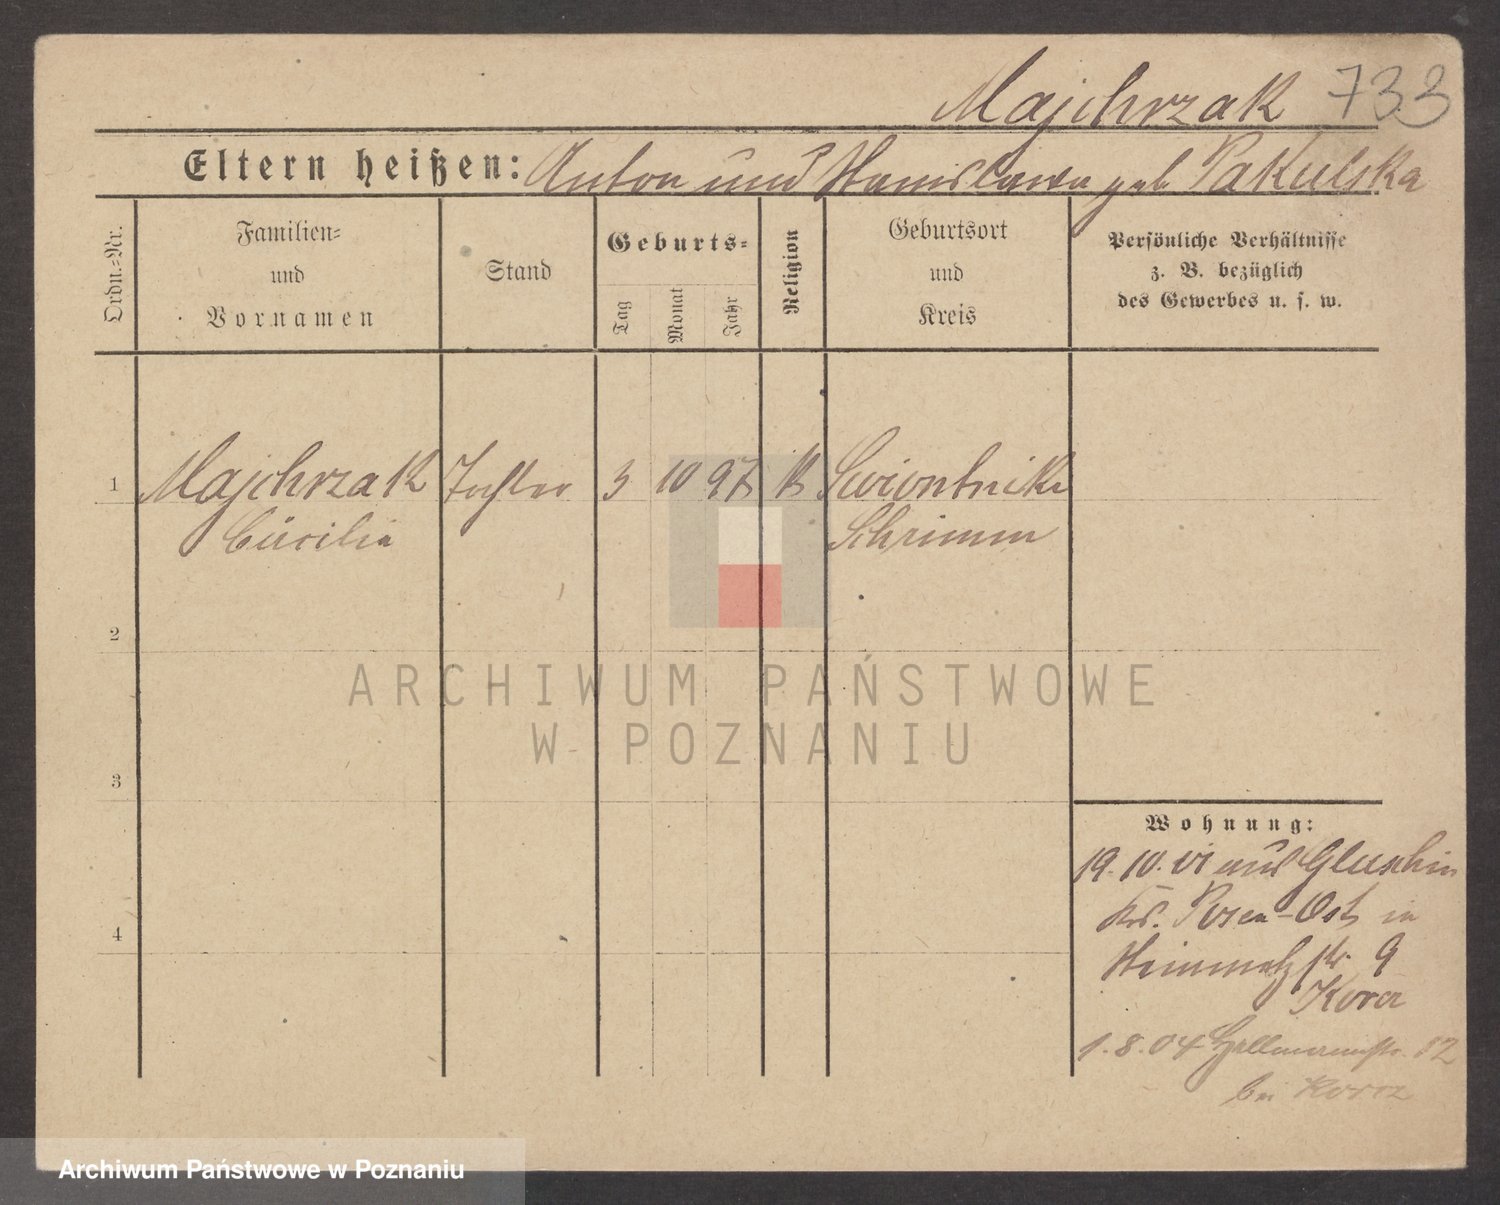 Majchrzak 733
Eltern heißen: Anton und Stanislawa geb. Pakulska
Ordn.=Nr.
Familien=
und
Vornamen
Stand
Geburts=
Tag
Monat
Jahr
Religion
Geburtsort
und
Kreis
Persönliche Verhältnisse
z. B. bezüglich
des Gewerbes u. s. w.
1 Majchrzak Tochter 3 10 97 k Swiontniki
Cäcilia Schrimm
2
3
4
Wohnung:
19. 10. 01 aus Gluschin
Krs. Posen-Ost in
str. 9
1. 8. 04 12
bei
ARCHIWUM PAŃSTWOWE
W POZNANIU
Archiwum Państwowe w Poznaniu